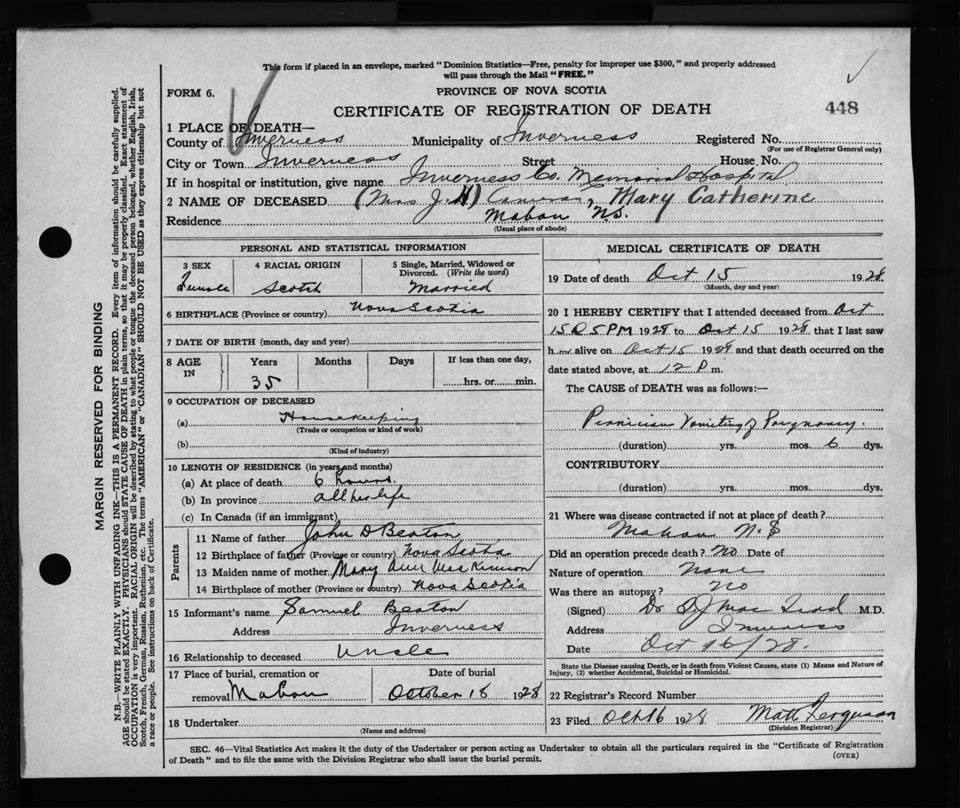 This form if placed in an envelope, marked "Dominion Statistics—Free, penalty for improper use $300," and properly addressed
will pass through the Mail "FREE."
FORM 6.
PROVINCE OF NOVA SCOTIA
CERTIFICATE OF REGISTRATION OF DEATH
448
1 PLACE OF DEATH—
County of Inverness Municipality of Inverness Registered No.
(For use of Registrar General only)
City or Town Inverness Street House No.
If in hospital or institution, give name Inverness Co. Memorial Hospital
2 NAME OF DECEASED (Mrs J. H) Cameron, Mary Catherine
Residence Mabou NS.
(Usual place of abode)
PERSONAL AND STATISTICAL INFORMATION
3 SEX 4 RACIAL ORIGIN 5 Single, Married, Widowed or Divorced. (Write the word)
Female Scotch Married
6 BIRTHPLACE (Province or country) Nova Scotia
7 DATE OF BIRTH (month, day and year)
8 AGE IN Years Months Days If less than one day,
35 hrs. or min.
9 OCCUPATION OF DECEASED
(a) Housekeeping
(Trade or occupation or kind of work)
(b)
(Kind of industry)
10 LENGTH OF RESIDENCE (in years and months)
(a) At place of death 6 hours
(b) In province all her life
(c) In Canada (if an immigrant)
Parents
11 Name of father John D Beaton
12 Birthplace of father (Province or country) Nova Scotia
13 Maiden name of mother Mary Ann
14 Birthplace of mother (Province or country) Nova Scotia
15 Informant's name Samuel Beaton
Address Inverness
16 Relationship to deceased Uncle
17 Place of burial, cremation or removal Mabou
Date of burial
October 18 1928
18 Undertaker
(Name and address)
MEDICAL CERTIFICATE OF DEATH
19 Date of death Oct 15 1928
(Month, day and year)
20 I HEREBY CERTIFY that I attended deceased from Oct
15 5 PM 1928 to Oct 15 1928 that I last saw
h er alive on Oct 15 1928 and that death occurred on the
date stated above, at 12 P m.
The CAUSE of DEATH was as follows:—
Pernicious Vomiting of Pregnancy.
(duration) yrs. mos. 6 dys.
CONTRIBUTORY
(duration) yrs. mos. dys.
21 Where was disease contracted if not at place of death?
Mabou N.S
Did an operation precede death? No Date of
Nature of operation None
Was there an autopsy? No
(Signed) Dr M.D.
Address Inverness
Date Oct 16/28.
State the Disease causing Death, or in death from Violent Causes, state (1) Means and Nature of
Injury, (2) whether Accidental, Suicidal or Homicidal.
22 Registrar's Record Number
23 Filed Oct 16 1928 Matt Ferguson
(Division Registrar)
SEC. 46—Vital Statistics Act makes it the duty of the Undertaker or person acting as Undertaker to obtain all the particulars required in the "Certificate of Registration
of Death" and to file the same with the Division Registrar who shall issue the burial permit.
(OVER)
MARGIN RESERVED FOR BINDING
N.B.—WRITE PLAINLY WITH UNFADING INK—THIS IS A PERMANENT RECORD. Every item of information should be carefully supplied.
AGE should be stated EXACTLY. PHYSICIANS should STATE CAUSE OF DEATH in plain terms, so that it may be properly classified. Exact statement of
OCCUPATION is very important. RACIAL ORIGIN will be described by stating to what people or tongue the deceased person belonged, whether English, Irish,
Scotch, French, German, Russian, Ruthenian, etc. The terms "AMERICAN" or "CANADIAN" SHOULD NOT BE USED as they express citizenship but not
a race or people. See instructions on back of Certificate.